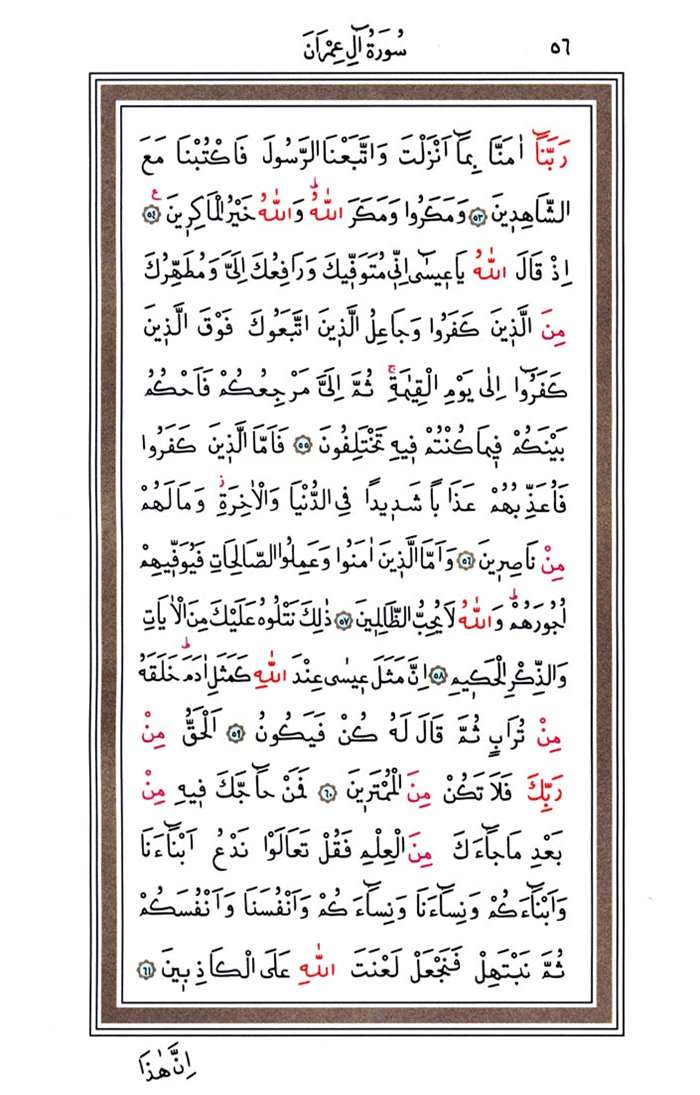 ٥٦ سُورَةُ اٰلِ عِمْرٰنَ
رَبَّنَٓا اٰمَنَّا بِمَٓا اَنْزَلْتَ وَاتَّبَعْنَا الرَّسُولَ فَاكْتُبْنَا مَعَ
الشَّاهِدٖينَ ﴿٥٣﴾ وَمَكَرُوا وَمَكَرَ اللّٰهُؕ وَاللّٰهُ خَيْرُ الْمَاكِرٖينَࣖ ﴿٥٤﴾
اِذْ قَالَ اللّٰهُ يَا عٖيسٰٓى اِنّٖي مُتَوَفّٖيكَ وَرَافِعُكَ اِلَيَّ وَمُطَهِّرُكَ
مِنَ الَّذٖينَ كَفَرُوا وَجَاعِلُ الَّذٖينَ اتَّبَعُوكَ فَوْقَ الَّذٖينَ
كَفَرُٓوا اِلٰى يَوْمِ الْقِيٰمَةِۚ ثُمَّ اِلَيَّ مَرْجِعُكُمْ فَاَحْكُمُ
بَيْنَكُمْ فٖيمَا كُنْتُمْ فٖيهِ تَخْتَلِفُونَ ﴿٥٥﴾ فَاَمَّا الَّذٖينَ كَفَرُوا
فَاُعَذِّبُهُمْ عَذَاباً شَدٖيداً فِي الدُّنْيَا وَالْاٰخِرَةِؗ وَمَا لَهُمْ
مِنْ نَاصِرٖينَ ﴿٥٦﴾ وَاَمَّا الَّذٖينَ اٰمَنُوا وَعَمِلُوا الصَّالِحَاتِ فَيُوَفّٖيهِمْ
اُجُورَهُمْؕ وَاللّٰهُ لَا يُحِبُّ الظَّالِمٖينَ ﴿٥٧﴾ ذٰلِكَ نَتْلُوهُ عَلَيْكَ مِنَ الْاٰيَاتِ
وَالذِّكْرِ الْحَكٖيمِ ﴿٥٨﴾ اِنَّ مَثَلَ عٖيسٰى عِنْدَ اللّٰهِ كَمَثَلِ اٰدَمَؕ خَلَقَهُ
مِنْ تُرَابٍ ثُمَّ قَالَ لَهُ كُنْ فَيَكُونُ ﴿٥٩﴾ اَلْحَقُّ مِنْ
رَبِّكَ فَلَا تَكُنْ مِنَ الْمُمْتَرٖينَ ﴿٦٠﴾ فَمَنْ حَٓاجَّكَ فٖيهِ مِنْ
بَعْدِ مَا جَٓاءَكَ مِنَ الْعِلْمِ فَقُلْ تَعَالَوْا نَدْعُ اَبْنَٓاءَنَا
وَاَبْنَٓاءَكُمْ وَنِسَٓاءَنَا وَنِسَٓاءَكُمْ وَاَنْفُسَنَا وَاَنْفُسَكُمْ
ثُمَّ نَبْتَهِلْ فَنَجْعَلْ لَعْنَتَ اللّٰهِ عَلَى الْكَاذِبٖينَ ﴿٦١﴾
اِنَّ هٰذَا